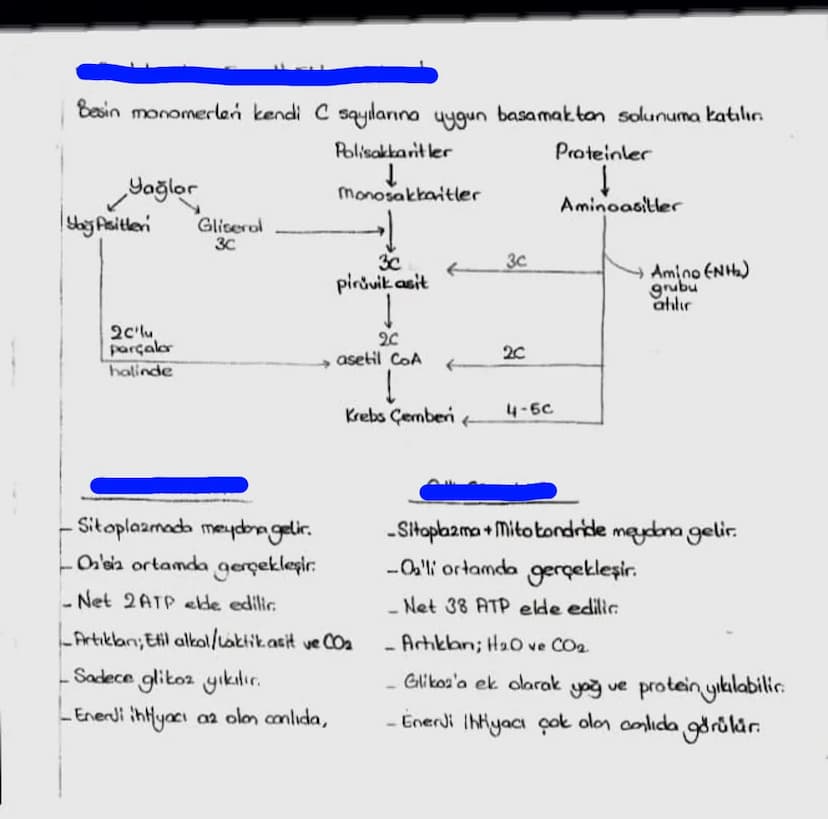 Besin monomerleri kendi C sayılarına uygun basamaktan solunuma katılır.
Polisakkaritler
Proteinler
Yağlar
Monosakkaritler
Aminoasitler
Yağ Asitleri
Gliserol
3C
3C
3C
pirüvik asit
Amino (-NH₂)
grubu
atılır
2C'lu
parçalar
halinde
2C
asetil CoA
2C
Krebs Çemberi
4-5C
- Sitoplazmada meydana gelir.
- O₂'siz ortamda gerçekleşir.
- Net 2 ATP elde edilir.
- Artıkları; Etil alkol/Laktik asit ve CO₂
- Sadece glikoz yıkılır.
- Enerji ihtiyacı az olan canlıda,
- Sitoplazma + Mitokondride meydana gelir.
- O₂'li ortamda gerçekleşir.
- Net 38 ATP elde edilir.
- Artıkları; H₂O ve CO₂
- Glikoz'a ek olarak yağ ve protein yıkılabilir.
- Enerji ihtiyacı çok olan canlıda görülür.